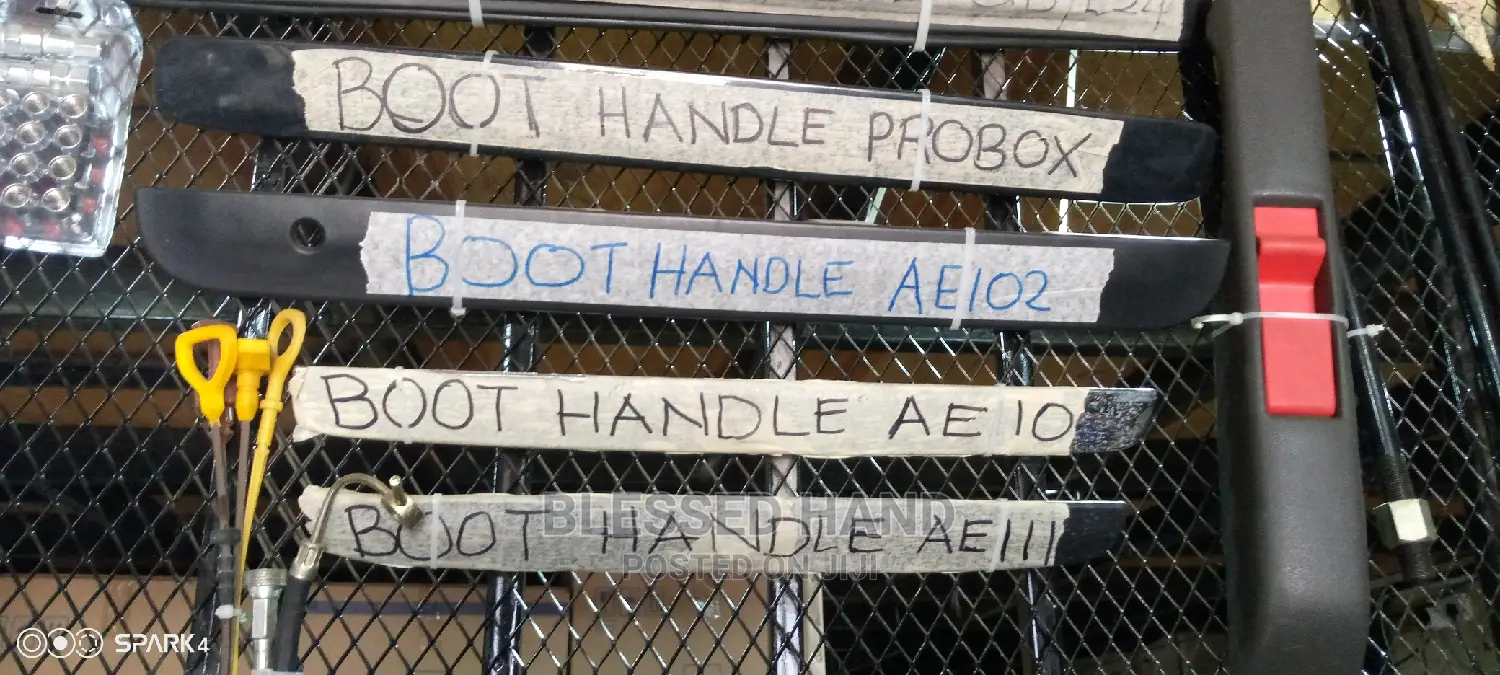 BOOT HANDLE PROBOX
BOOT HANDLE AE102
BOOT HANDLE AE 10
BOOT HANDLE AE111
BLESSED HAND
POSTED ON JIJI
SPARK 4